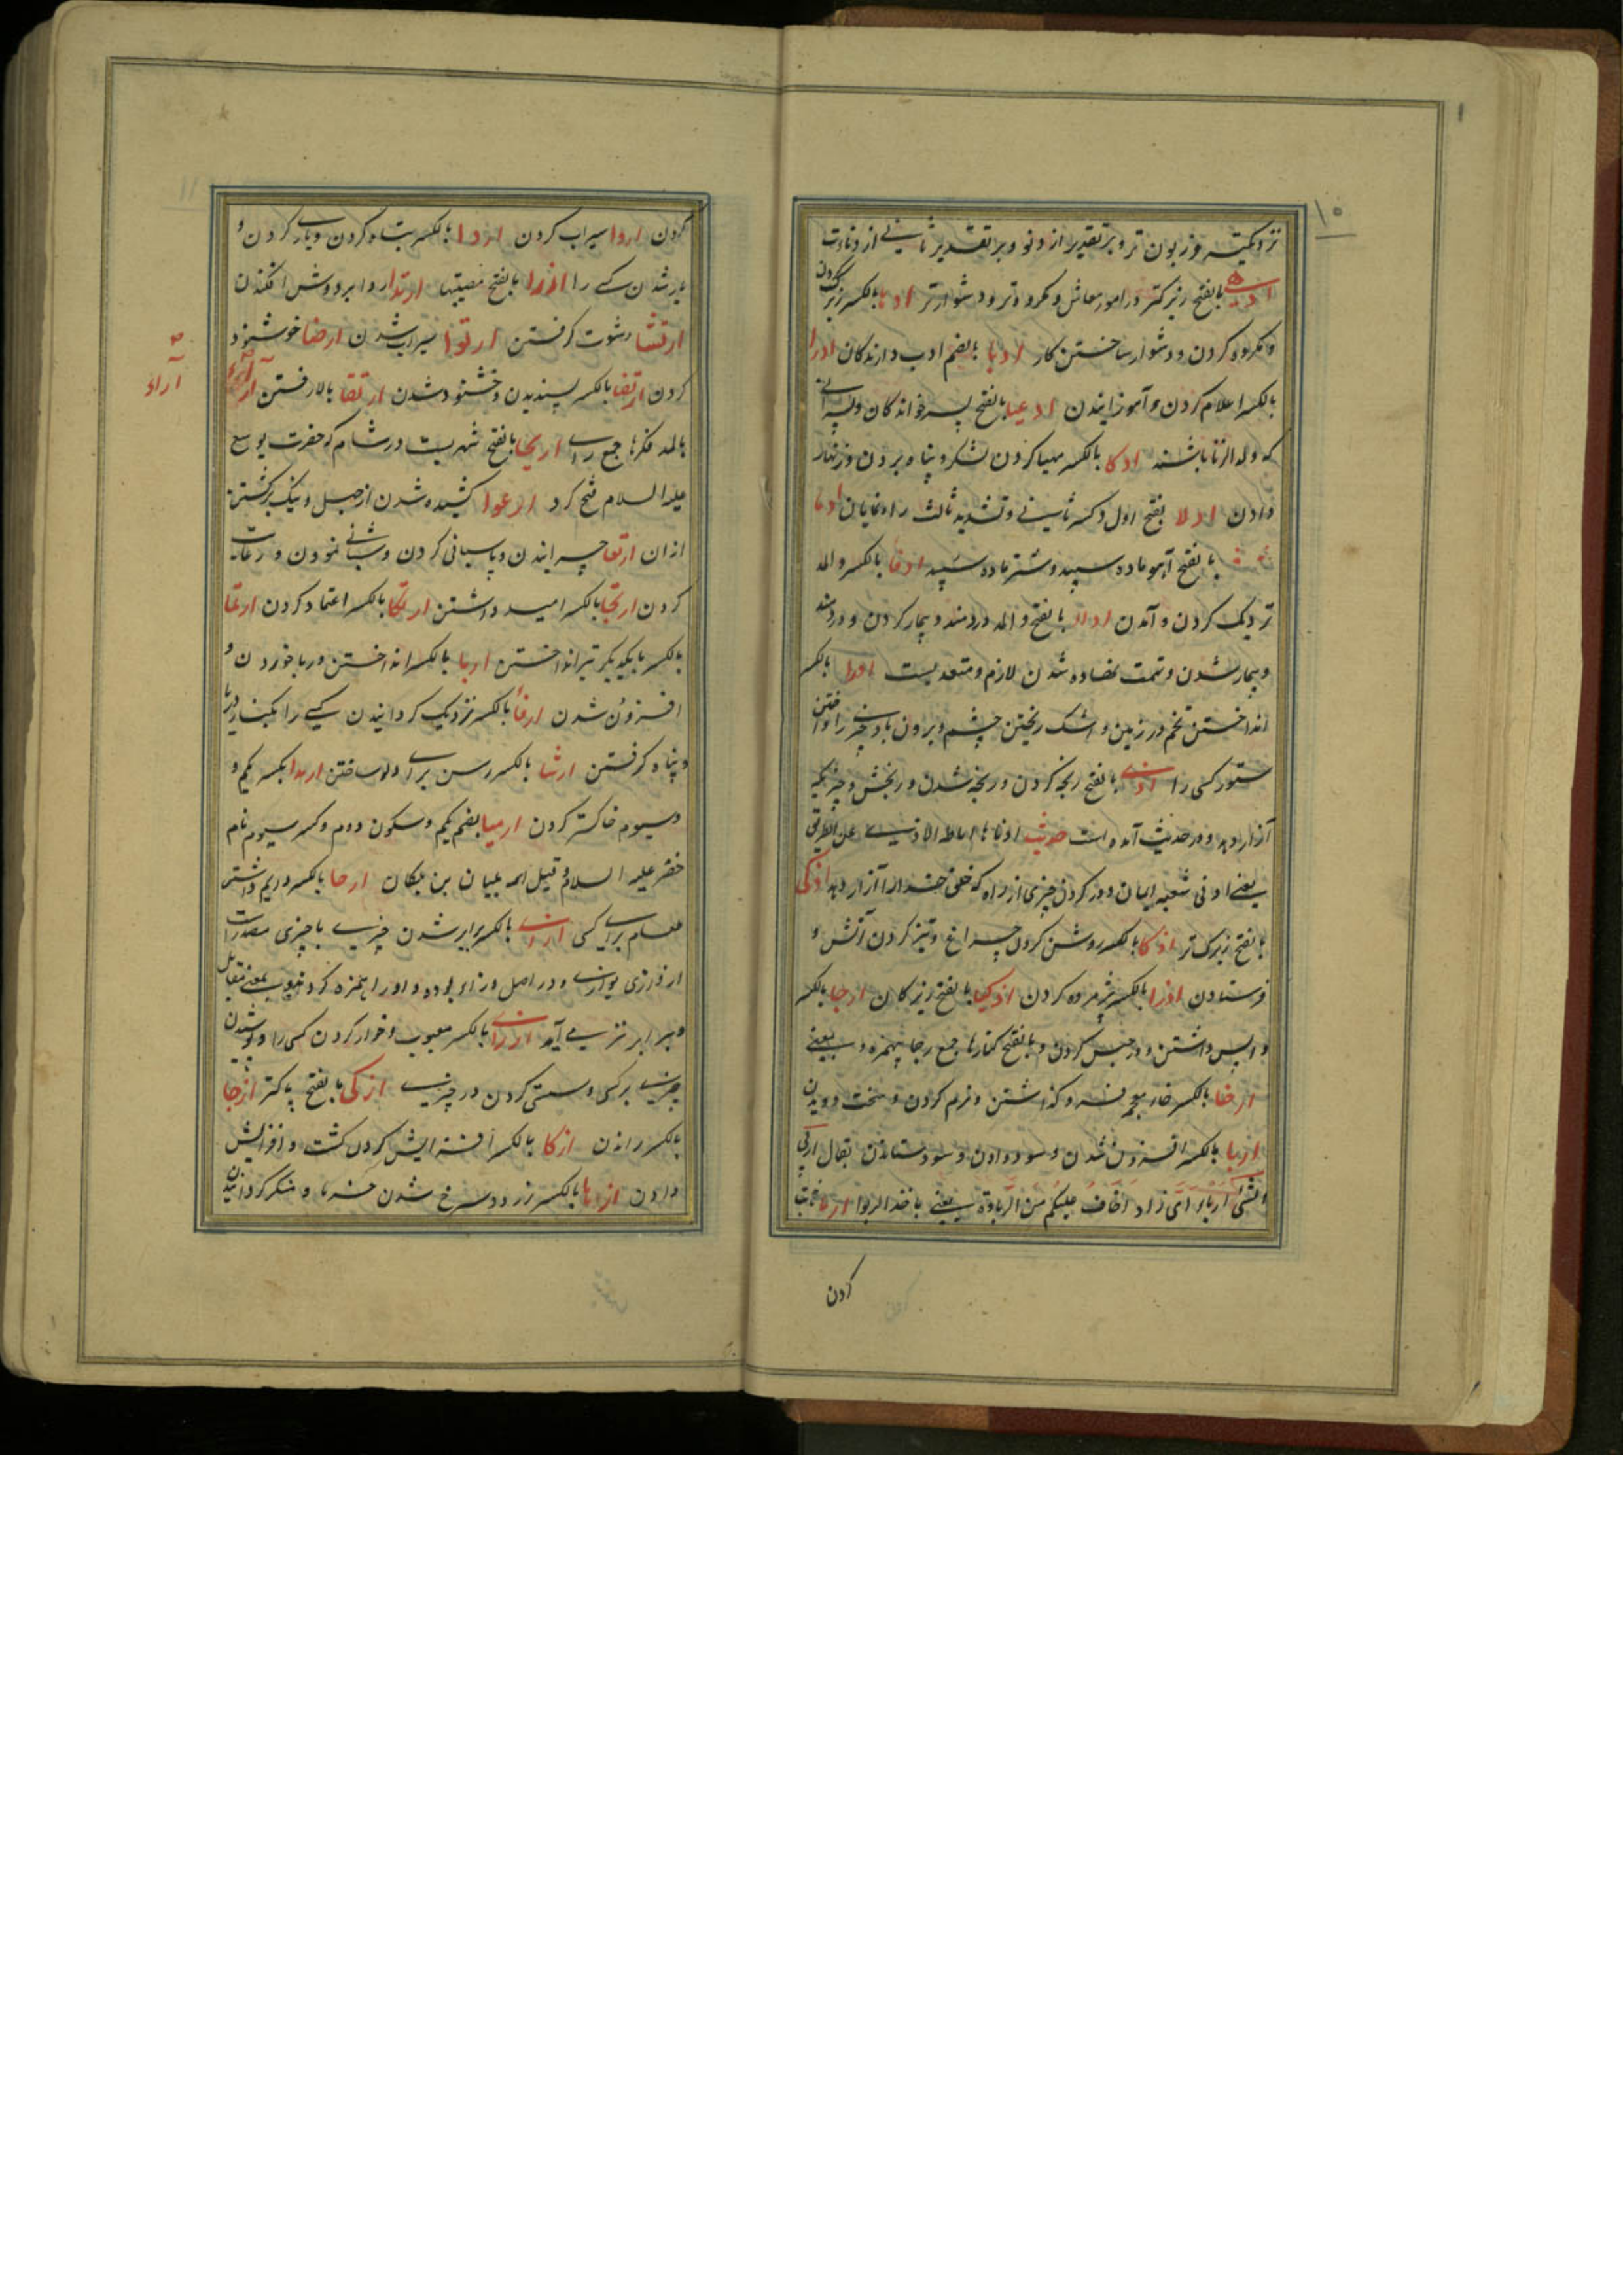 ۱۰
نزدیکتر و زبون تر و بر تقدیر از دنو و بر تقدیر ثانی از دناءت
بالفتح زیرکتر در امور معاش و مکروه تر و دشوارتر ادها بالکسر زیرک کردن
و مکروه کردن و دشوار ساختن کار ادبا بالضم ادب دارندگان ادرا
بالکسر اعلام کردن و آموزانیدن ادعیا بالفتح پسر خواندگان و پسرانی
که ولد الزنا باشند ادکا بالکسر مهیا کردن لشکر و پناه بردن و زنهار
دادن ادلا بفتح اول و کسر ثانی و تشدید ثالث راه نمایان ادما
بالفتح آهو ماده سپید و شتر ماده سپید ادفا بالکسر والمد
نزدیک کردن و آمدن ادواء بالفتح والمد دردمند و بیمار کردن و دردمند
و بیمار شدن و تهمت نهاده شدن لازم و متعدیست اذرا بالکسر
انداختن تخم در زمین و اشک ریختن چشم و برون باد چیزی را و انداختن
ستور کسی را اذی بالفتح رنجه کردن و رنجه شدن و رنجش و چیزیکه
آزار دهد و در حدیث آمده است حدیث ادناها اماطة الاذی عن الطریق
یعنی ادنی شعبه ایمان دور کردن چیزی از راه که خلق خدا را آزار دهد اذکی
بالفتح زیرک تر اذکا بالکسر روشن کردن چراغ و تیز کردن آتش و
فرستادن اذوا بالکسر پژمرده کردن اذکیا بالفتح زیرکان ارجا بالکسر
واپس داشتن و در حبس کردن و بالفتح کنارها جمع رجا بهمزه و یعنی
ارخا بالکسر خاء معجمه فرو گذاشتن و نرم کردن و سخت دویدن
اربا بالکسر افزون شدن و سود دادن و سود ستاندن یقال اربی
الشیء ارباء ای زاد اخاف علیکم من الرباوة یعنی یأخذ الربوا ارعا
کردن
کردن اروا سیراب کردن اردا بالکسر تباه کردن و یاری کردن و
یار شدن کسی را ارزا بالفتح مصیبتها ارتدا ردا بر دوش افکندن
ارتشا رشوت گرفتن ارتوا سیراب شدن ارضا خوشنود
کردن ارتضا بالکسر پسندیدن و خشنود شدن ارتقا بالا رفتن آراء
آراء
بالمد فکرها جمع رای اریحا بالفتح شهریست در شام که حضرت یوشع
علیه السلام فتح کرد ارعوا کشیده شدن از جهل و نیک برگشتن
ازان ارتعا چرانیدن و پاسبانی کردن و شبانی نمودن و رعایت
کردن ارتجا بالکسر امید داشتن ارتکا بالکسر اعتماد کردن ارتما
بالکسر بایکدیگر تیر انداختن اربا بالکسر انداختن و ربا خوردن و
افزون شدن ارفأ بالکسر نزدیک گردانیدن کشتی را بکنار دریا
و پناه گرفتن ارشا بالکسر رسن برای دلو ساختن ارمدا بکسر یکم و
سیوم خاکستر کردن ارمیا بضم یکم و سکون دوم و کسر سیوم نام
خضر علیه السلام و قیل اسمه بلیان بن ملکان ارحا بالکسر دایم داشتن
طعام برای کسی ازا بالکسر برابر شدن چیزی با چیزی مصدر است
از وازی یوازی و در اصل وزاء بوده واو را همزه کردند و بمعنی مقابل
و برابر نیز می آید ازرا بالکسر معیوب و خوار کردن کسی را و پوشیدن
چیزی بر کسی و سستی کردن در چیزی ازکی بالفتح پاکتر ازجا
بالکسر راندن ازکا بالکسر افزایش کردن کشت و افزایش
دادن ازها بالکسر زرد و سرخ شدن خرما و متکبر گردانیدن